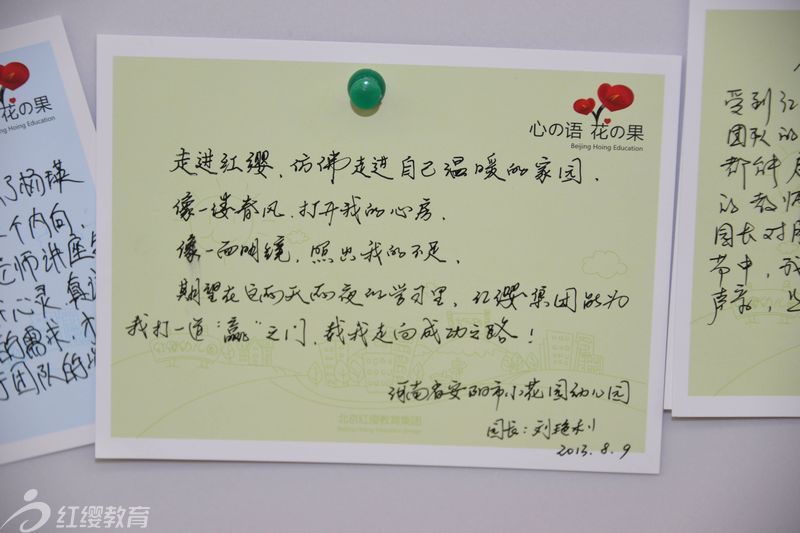 心の语 花の果
Beijing Hoing Education
走进红缨，仿佛走进自己温暖的家园，
像一缕春风，打开我的心房，
像一面明镜，照出我的不足，
期望在这两天两夜的学习里，红缨集团能为
我打一道“赢”之门，载我走向成功之路！
河南省安阳市小花园幼儿园
园长：刘艳利
2013.8.9
北京红缨教育集团
花の果
Beijing Hoing Education
杨瑛
个内向，
老师讲座
心灵，真
的需求，
团队的
受到红
团队的
都能
的教师
园长对
带中，我
声音，
红缨教育